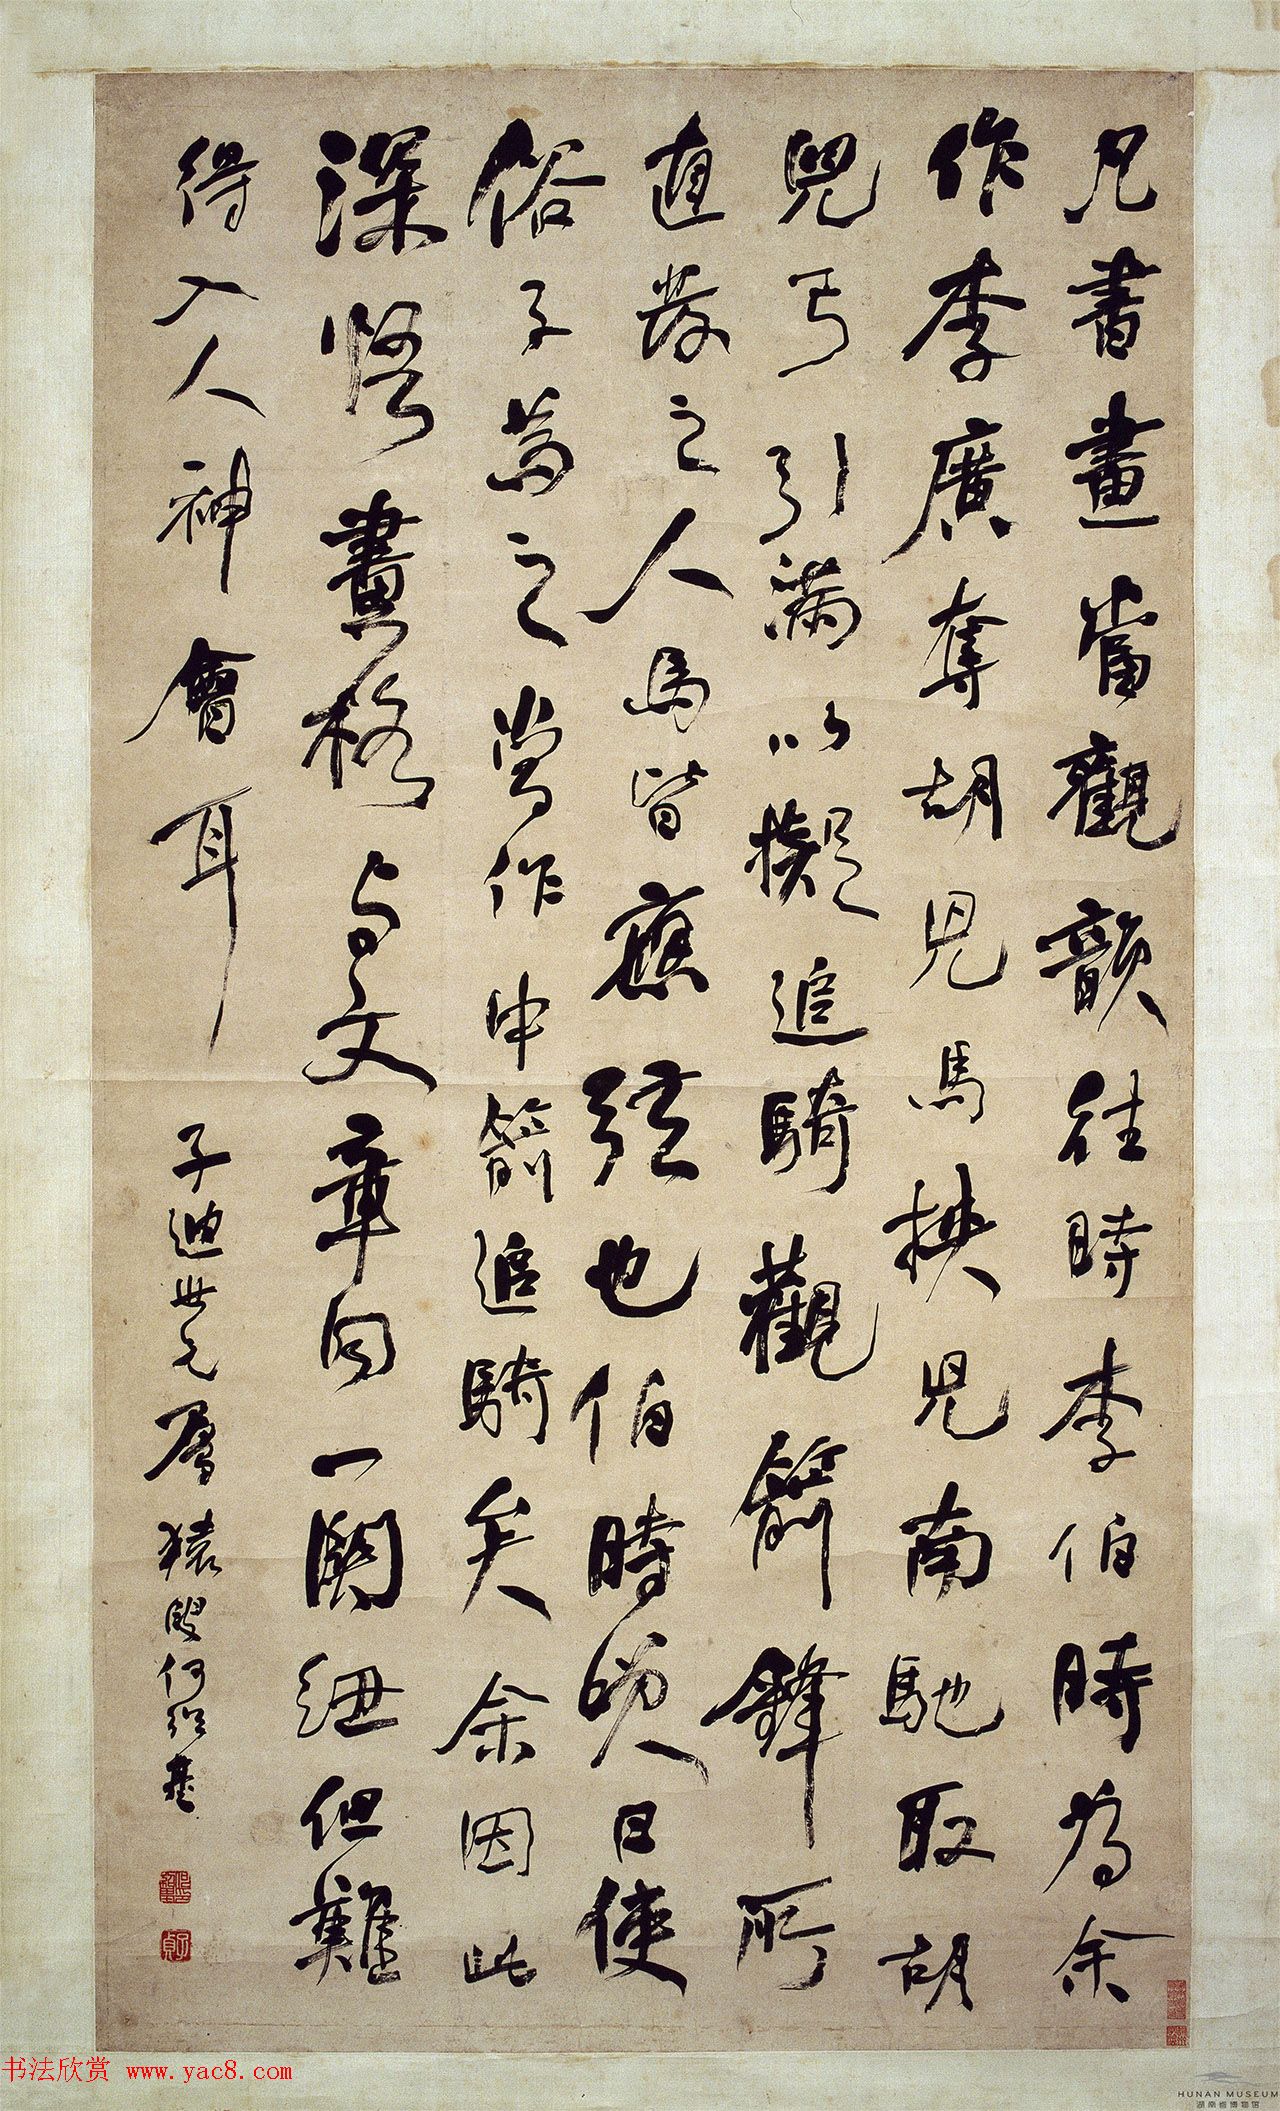 凡書畫當觀韻往時李伯時為余
作李廣奪胡兒馬挾兒南馳取胡
兒弓引滿以擬追騎觀箭鋒所
直發之人馬皆應弦也伯時笑曰使
俗子為之當作中箭追騎矣余因此
深悟畫格与文章同一關紐但難
得入人神會耳
子迪世兄屬 猿叟何紹基
书法欣赏 www.yac8.com
HUNAN MUSEUM
湖南省博物馆